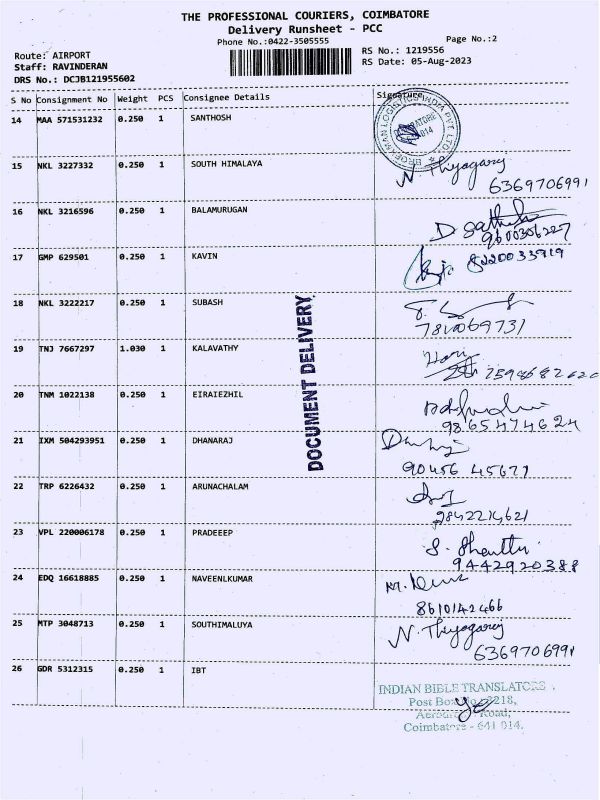 THE PROFESSIONAL COURIERS, COIMBATORE
Delivery Runsheet - PCC
Phone No.:0422-3505555
Page No.:2
Route: AIRPORT
RS No.: 1219556
Staff: RAVINDERAN
RS Date: 05-Aug-2023
DRS No.: DCJB121955602
S No Consignment No Weight PCS Consignee Details Signature
14 MAA 571531232 0.250 1 SANTHOSH
15 NKL 3227332 0.250 1 SOUTH HIMALAYA
N. Thiyagaraj
6369706991
16 NKL 3216596 0.250 1 BALAMURUGAN
D
9600306227
17 GMP 629501 0.250 1 KAVIN
8220033919
18 NKL 3222217 0.250 1 SUBASH
19 TNJ 7667297 1.030 1 KALAVATHY
Hari
20 TNM 1022138 0.250 1 EIRAIEZHIL
9865474624
21 IXM 504293951 0.250 1 DHANARAJ
90456 45671
22 TRP 6226432 0.250 1 ARUNACHALAM
9842214621
23 VPL 220006178 0.250 1 PRADEEEP
S.
9442920388
24 EDQ 16618885 0.250 1 NAVEENLKUMAR
8610142466
25 MTP 3048713 0.250 1 SOUTHIMALUYA
N. Thiyagaraj
6369706991
26 GDR 5312315 0.250 1 IBT
DOCUMENT DELIVERY
INDIAN BIBLE TRANSLATORS
Post Box No. 2218,
Road,
Coimbatore - 641 014.